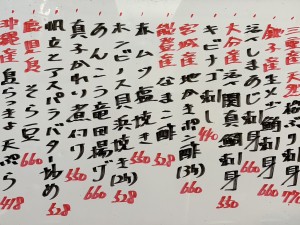 三重産 天然 刺身 770
銚子産 生メジ鮪刺身 660
活〆 刺身
大分産 活〆関真鯛刺身 550
キビナゴ刺し 440
宮城産 かきポン酢(3ヶ) 660
能登産 なまこ酢 528
赤ムツ塩焼き 550
ホンビノス貝浜焼き(2ケ) 528
あんこう竜田揚げ 660
真子かれい煮付け 660
帆立とアスパラバター炒め 528
鹿児島 そら豆 660
沖縄産 島らっきょ天ぷら 418